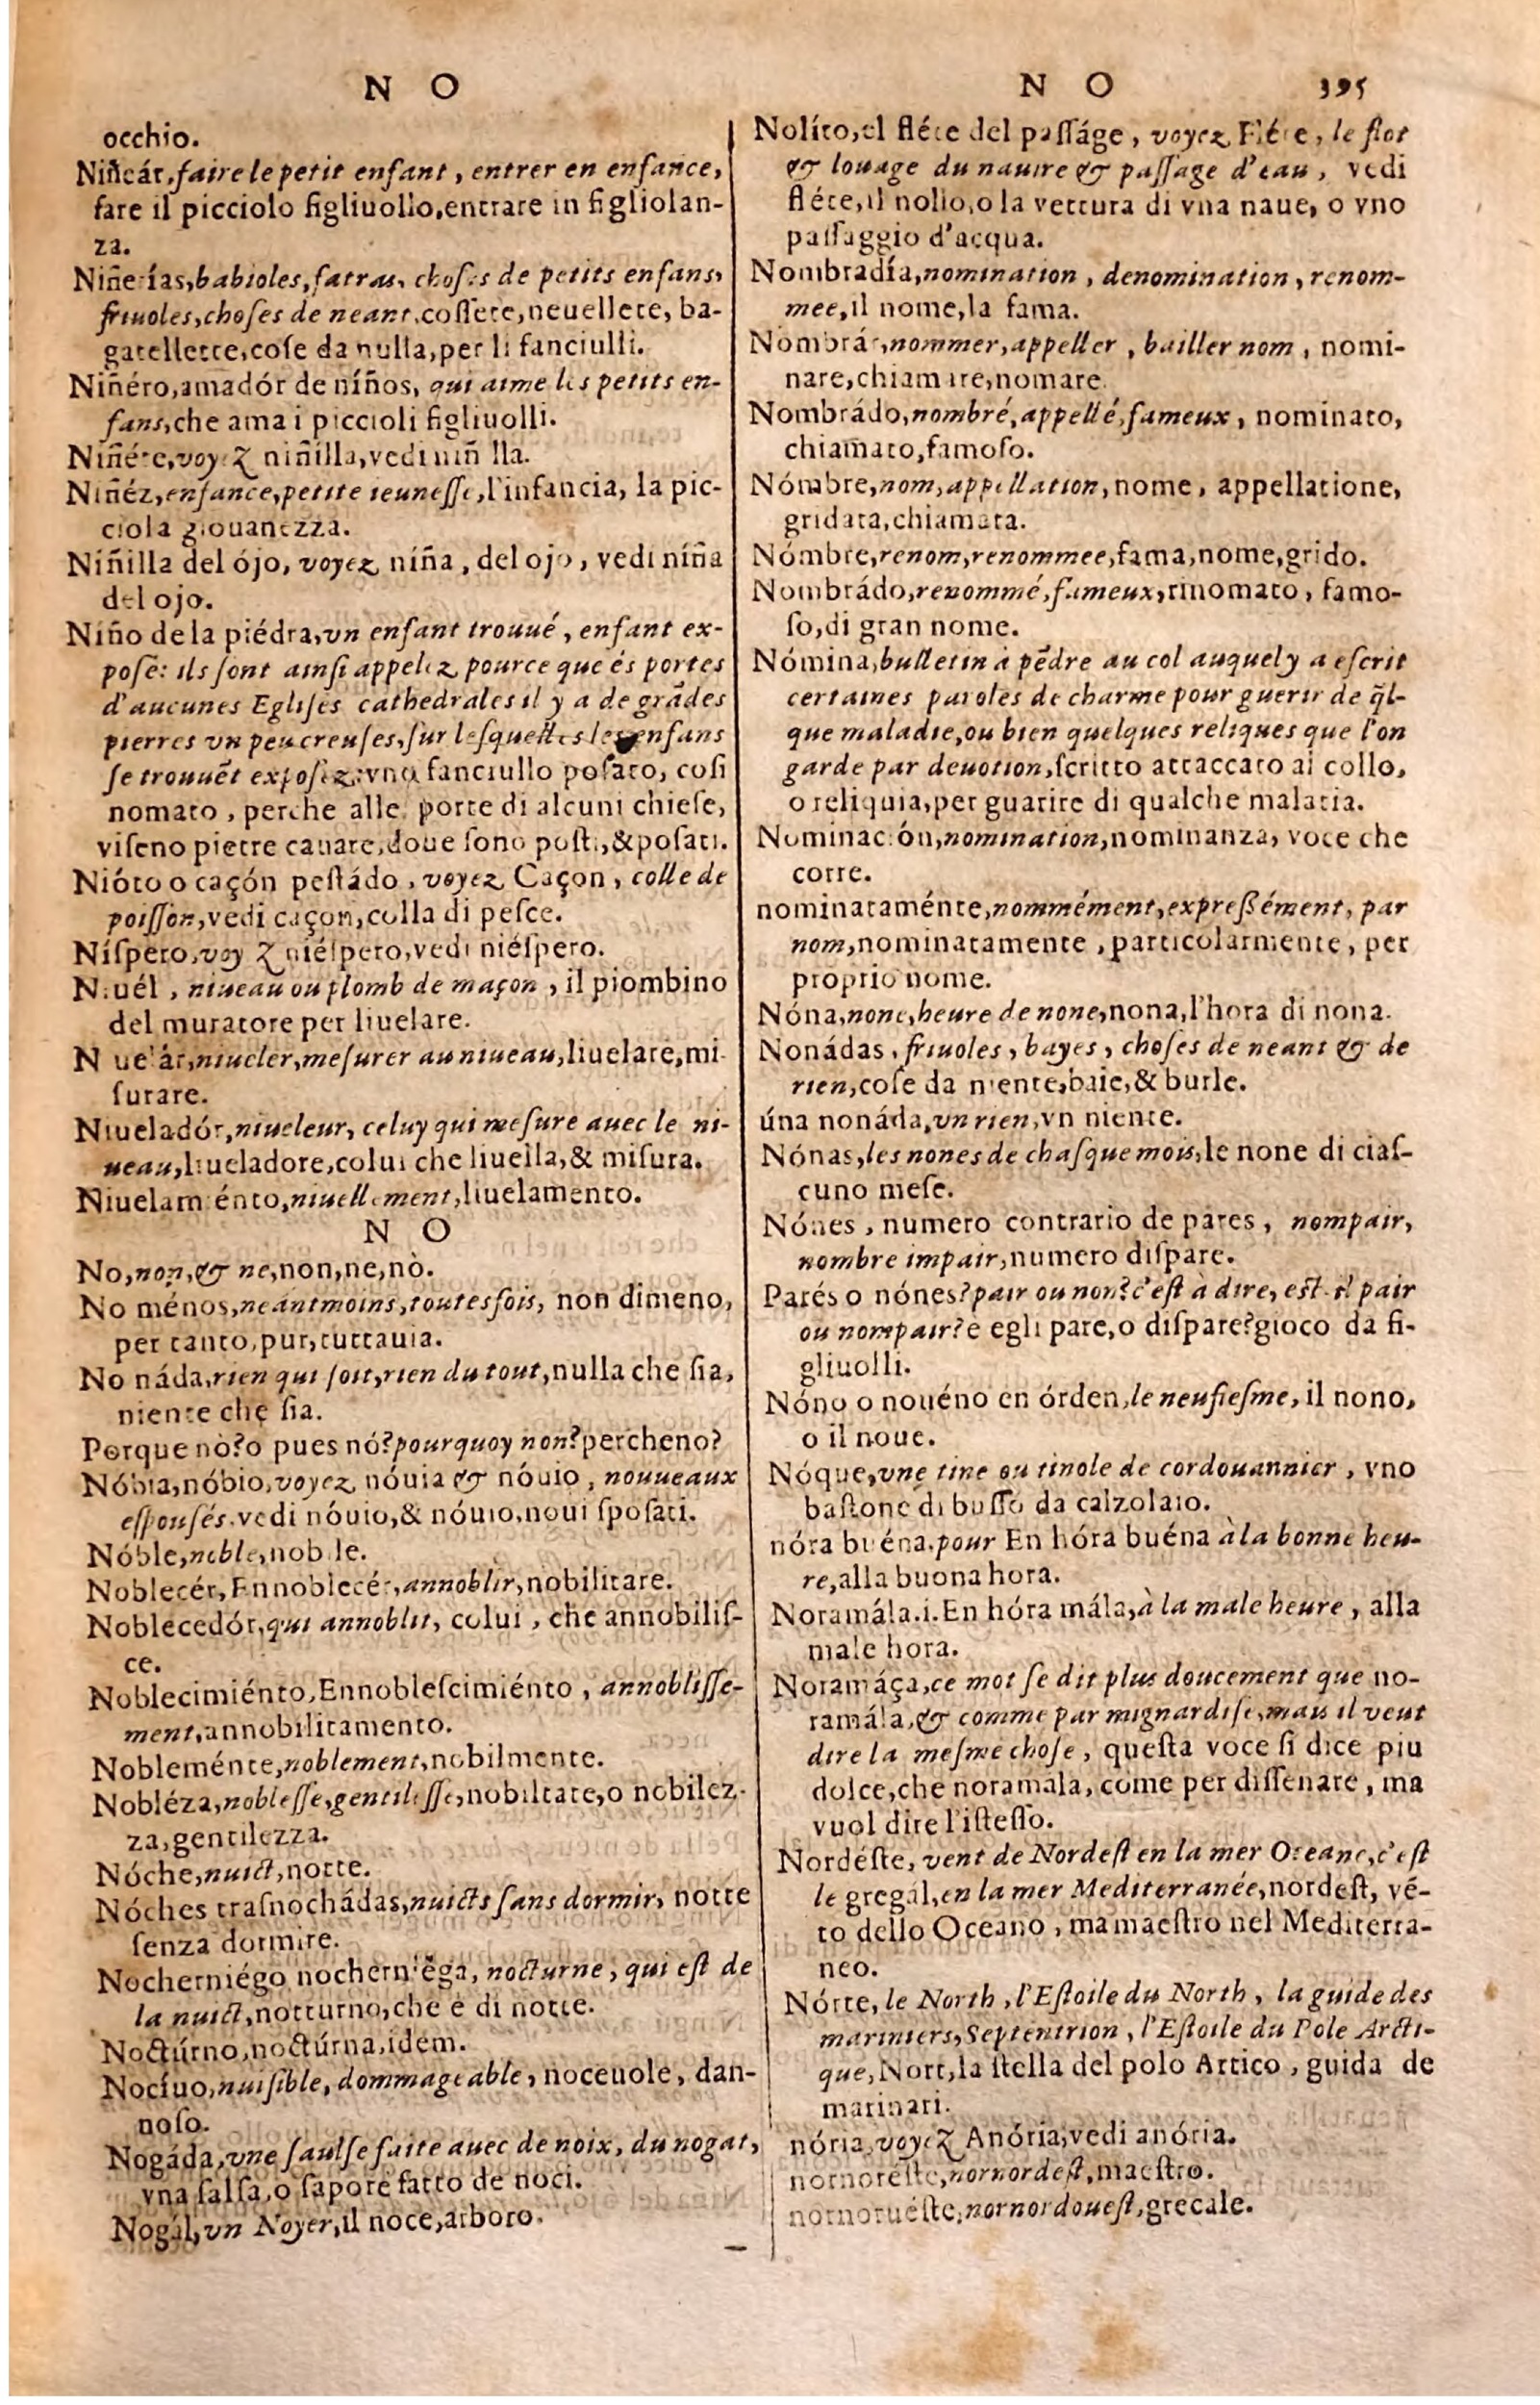 N O
occhio.
Niñeár, faire le petit enfant, entrer en enfance,
fare il picciolo figliuollo, entrare in figliolan-
za.
Niñerías, babioles, fatras, choses de petits enfans,
friuoles, choses de neant. cossete, neuellete, ba-
gatellette, cose da nulla, per li fanciulli.
Niñéro, amadór de níños, qui aime les petits en-
fans, che ama i piccioli figliuolli.
Niñéte, voyez niñilla, vedi niñ lla.
Niñéz, enfance, petite ieunesse, l'infancia, la pic-
ciola giouanezza.
Niñilla del ójo, voyez níña, del ojo, vedi níña
del ojo.
Níño de la piédra, vn enfant trouué, enfant ex-
posé: ils sont ainsi appelez pource que és portes
d'aucunes Eglises cathedrales il y a de grãdes
pierres vn peu creuses, sur lesquelles les enfans
se trouuẽt exposez: vno fanciullo posato, cosi
nomato, perche alle porte di alcuni chiese,
viseno pietre cauate, doue sono posti, & posati.
Nióto o caçón pestádo, voyez Caçon, colle de
poisson, vedi caçon, colla di pesce.
Níspero, voyez niéspero, vedi niéspero.
Niuél, niueau ou plomb de maçon, il piombino
del muratore per liuelare.
Niuelár, niueler, mesurer au niueau, liuelare, mi-
surare.
Niueladór, niueleur, celuy qui mesure auec le ni-
ueau, liueladore, colui che liuella, & misura.
Niuelamiénto, niuellement, liuelamento.
N O
No, non, & ne, non, ne, nò.
No ménos, neantmoins, toutesfois, non dimeno,
per tanto, pur, tuttauia.
No náda, rien qui soit, rien du tout, nulla che sia,
niente che sia.
Porque nò? o pues nó? pourquoy non? percheno?
Nóbia, nóbio, voyez nóuia & nóuio, nouueaux
espousés. vedi nóuio, & nóuio, noui sposati.
Nóble, noble, nobile.
Noblecér, Ennoblecér, annoblir, nobilitare.
Noblecedór, qui annoblit, colui, che annobilis-
ce.
Noblecimiénto, Ennoblescimiénto, annoblisse-
ment, annobilitamento.
Nobleménte, noblement, nobilmente.
Nobléza, noblesse, gentilesse, nobiltate, o nobilez-
za, gentilezza.
Nóche, nuict, notte.
Nóches trasnochádas, nuicts sans dormir, notte
senza dormire.
Nocherniégo nocherniéga, nocturne, qui est de
la nuict, notturno, che è di notte.
Noctúrno, noctúrna, idem.
Nocíuo, nuisible, dommageable, noceuole, dan-
noso.
Nogáda, vne saulse faite auec de noix, du nogat,
vna salsa, o sapore fatto de noci.
Nogál, vn Noyer, il noce, arboro.
N O 395
Nolíto, el fléte del passáge, voyez Fléte, le flot
& louage du nauire & passage d'eau, vedi
fléte, il nollo, o la vettura di vna naue, o vno
passaggio d'acqua.
Nombradía, nomination, denomination, renom-
mee, il nome, la fama.
Nombrár, nommer, appeller, bailler nom, nomi-
nare, chiamare, nomare.
Nombrádo, nombré, appellé, fameux, nominato,
chiamato, famoso.
Nómbre, nom, appellation, nome, appellatione,
gridata, chiamata.
Nómbre, renom, renommee, fama, nome, grido.
Nombrádo, renommé, fameux, rinomato, famo-
so, di gran nome.
Nómina, bulletin à pẽdre au col auquel y a escrit
certaines paroles de charme pour guerir de q̃l-
que maladie, ou bien quelques reliques que l'on
garde par deuotion, scritto attaccato al collo,
o reliquia, per guarire di qualche malatia.
Nominación, nomination, nominanza, voce che
corre.
nominataménte, nommément, expressément, par
nom, nominatamente, particolarmente, per
proprio nome.
Nóna, none, heure de none, nona, l'hora di nona.
Nonádas, friuoles, bayes, choses de neant & de
rien, cose da niente, baie, & burle.
úna nonáda, vn rien, vn niente.
Nónas, les nones de chasque mois, le none di cias-
cuno mese.
Nónes, numero contrario de pares, nompair,
nombre impair, numero dispare.
Parés o nónes? pair ou non? c'est à dire, est-il pair
ou nompair? è egli pare, o dispare? gioco da fi-
gliuolli.
Nóno o nouéno en órden, le neufiesme, il nono,
o il noue.
Nóque, vne tine ou tinole de cordouannier, vno
bastone di busso da calzolaio.
nóra buéna. pour En hóra buéna à la bonne heu-
re, alla buona hora.
Noramála. i. En hóra mála, à la male heure, alla
male hora.
Noramáça, ce mot se dit plus doucement que no-
ramála, & comme par mignardise, mais il veut
dire la mesme chose, questa voce si dice piu
dolce, che noramala, come per dissenare, ma
vuol dire l'istesso.
Nordéste, vent de Nordest en la mer Oceane, c'est
le gregál, en la mer Mediterranée, nordest, vé-
to dello Oceano, ma maestro nel Mediterra-
neo.
Nórte, le North, l'Estoile du North, la guide des
mariniers, Septentrion, l'Estoile du Pole Arcti-
que, Nort, la stella del polo Artico, guida de
marinari.
nória, voyez Anória, vedi anória.
nornoréste, nornordest, maestro.
nornoruéste, nornordouest, grecale.